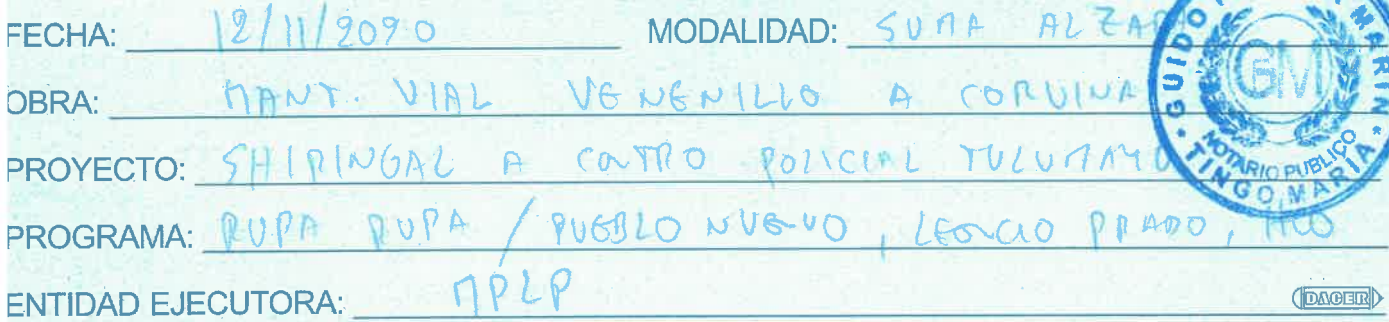 FECHA: 12/11/2020 MODALIDAD: SUMA ALZADA
OBRA: MANT. VIAL VENENILLO A CORVINA
PROYECTO: SHIRINGAL A CONTRO POLICIAL TULUMAYO
PROGRAMA: RUPA RUPA / PUEBLO NUEVO, LEONCIO PRADO, HCO
ENTIDAD EJECUTORA: MPLP
DACER
GUIDO MARIN
GM
NOTARIO PUBLICO
TINGO MARIA